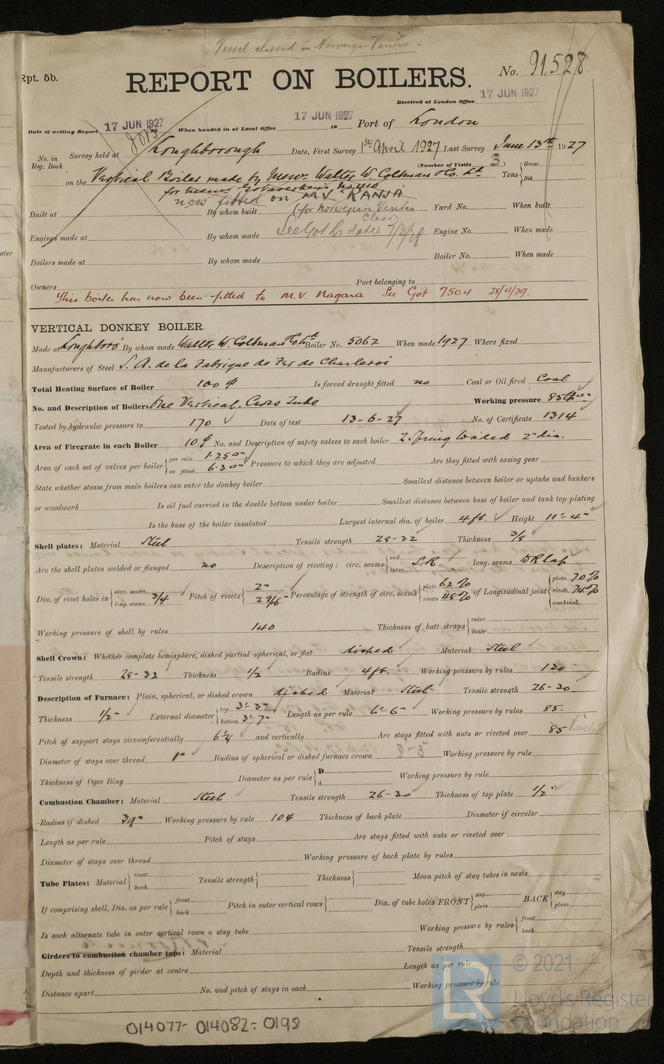 Vessel classed in Norwegian Veritas.
Rpt. 5b.
REPORT ON BOILERS.
No. 91,528
Received at London Office 17 JUN 1927
Date of writing Report 17 JUN 1927 When handed in at Local Office 17 JUN 1927 19 Port of London
No. in Reg. Book Survey held at Loughborough Date, First Survey 1st April 1927 Last Survey June 13th 1927
(Number of Visits 3) Tons { Gross Net
on the Vertical Boiler made by Messrs Walter W. Coltman & Co. Ltd
now fitted on M.V. KANJA
Built at By whom built (for Norwegian Veritas Class) Yard No. When built
Engines made at By whom made See Got Engine No. When made
Boilers made at By whom made Boiler No. When made
Owners Port belonging to
This boiler has now been fitted to M.V. Nagara See Got 7504 28/4/29.
VERTICAL DONKEY BOILER.
Made at Loughboro' By whom made Walter W Coltman & Co Ltd Boiler No. 5062 When made 1927 Where fixed
Manufacturers of Steel S. A. de la Fabrique de Fer de Charleroi
Total Heating Surface of Boiler 100 Is forced draught fitted no Coal or Oil fired Coal
No. and Description of Boilers One Vertical. Cross Tube Working pressure 85
Tested by hydraulic pressure to 170 Date of test 13-6-27 No. of Certificate 1314
Area of Firegrate in each Boiler 10 No. and Description of safety valves to each boiler 2. Spring loaded 2" dia.
Area of each set of valves per boiler { per rule as fitted 6.30 Pressure to which they are adjusted Are they fitted with easing gear
State whether steam from main boilers can enter the donkey boiler Smallest distance between boiler or uptake and bunkers
or woodwork Is oil fuel carried in the double bottom under boiler Smallest distance between base of boiler and tank top plating
Is the base of the boiler insulated Largest internal dia. of boiler 4 ft. Height 11'-4"
Shell plates: Material Steel Tensile strength 28-32 Thickness 3/8
Are the shell plates welded or flanged no Description of riveting: circ. seams { end S.R. inter. long. seams DR lap
Dia. of rivet holes in { circ. seams long. seams 3/4 Pitch of rivets { 2" Percentage of strength of circ. seams { plate 62% rivets of Longitudinal joint { plate 70% rivets combined
Working pressure of shell by rules 140 Thickness of butt straps { outer inner
Shell Crown: Whether complete hemisphere, dished partial spherical, or flat dished Material Steel
Tensile strength 28-32 Thickness 1/2 Radius 4 ft. Working pressure by rules 120
Description of Furnace: Plain, spherical, or dished crown dished Material Steel Tensile strength 26-30
Thickness 1/2" External diameter { top 3'-3" bottom 3'-7" Length as per rule 6'-6" Working pressure by rules 85.
Pitch of support stays circumferentially and vertically Are stays fitted with nuts or riveted over 85
Diameter of stays over thread 1" Radius of spherical or dished furnace crown Working pressure by rule
Thickness of Ogee Ring Diameter as per rule { D d Working pressure by rule
Combustion Chamber: Material Steel Tensile strength 26-30 Thickness of top plate 1/2"
Radius if dished Working pressure by rule 104 Thickness of back plate Diameter if circular
Length as per rule Pitch of stays Are stays fitted with nuts or riveted over
Diameter of stays over thread Working pressure of back plate by rules
Tube Plates: Material { front back Tensile strength { Thickness { Mean pitch of stay tubes in nests
If comprising shell, Dia. as per rule { front back Pitch in outer vertical rows { Dia. of tube holes FRONT { stay plain BACK { stay plain
Is each alternate tube in outer vertical rows a stay tube Working pressure by rules { front back
Girders to combustion chamber tops: Material Tensile strength
Depth and thickness of girder at centre Length as per rule
Distance apart No. and pitch of stays in each Working pressure by rule
© 2021
Lloyd's Register
Foundation
LR
014077-014082-0198